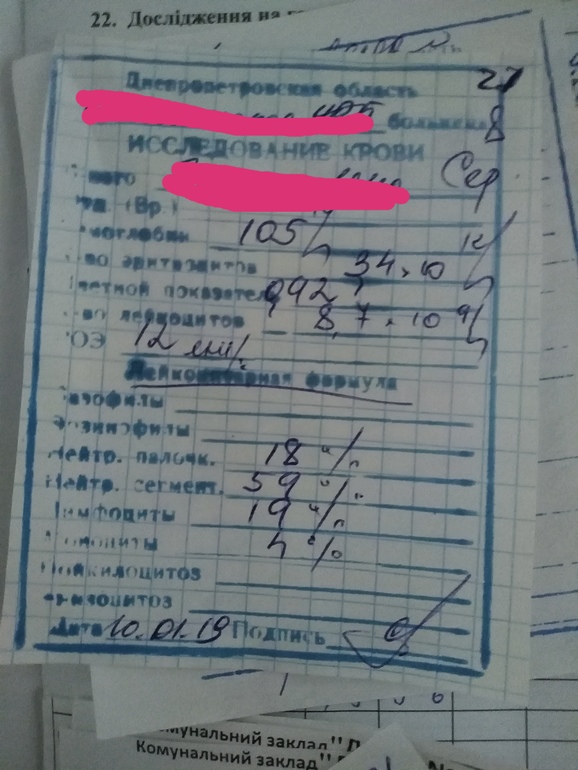 22. Дослідження на
27
Днепропетровская область
больница
ИССЛЕДОВАНИЕ КРОВИ
Сер
(Вр.)
105
эритроцитов 3,4 × 10 12/
показатель 0,92
лейкоцитов 8,7 × 10 9/
ОЭ 12 мм/
Лейкоцитарная формула
Базофилы
Эозинофилы
Нейтр. палочк. 18 %
Нейтр. сегмент. 59 %
Лимфоциты 19 %
Моноциты 4 %
Пойкилоцитоз
Дата 10.01.19 Подпись
Комунальний заклад"
Комунальний заклад"